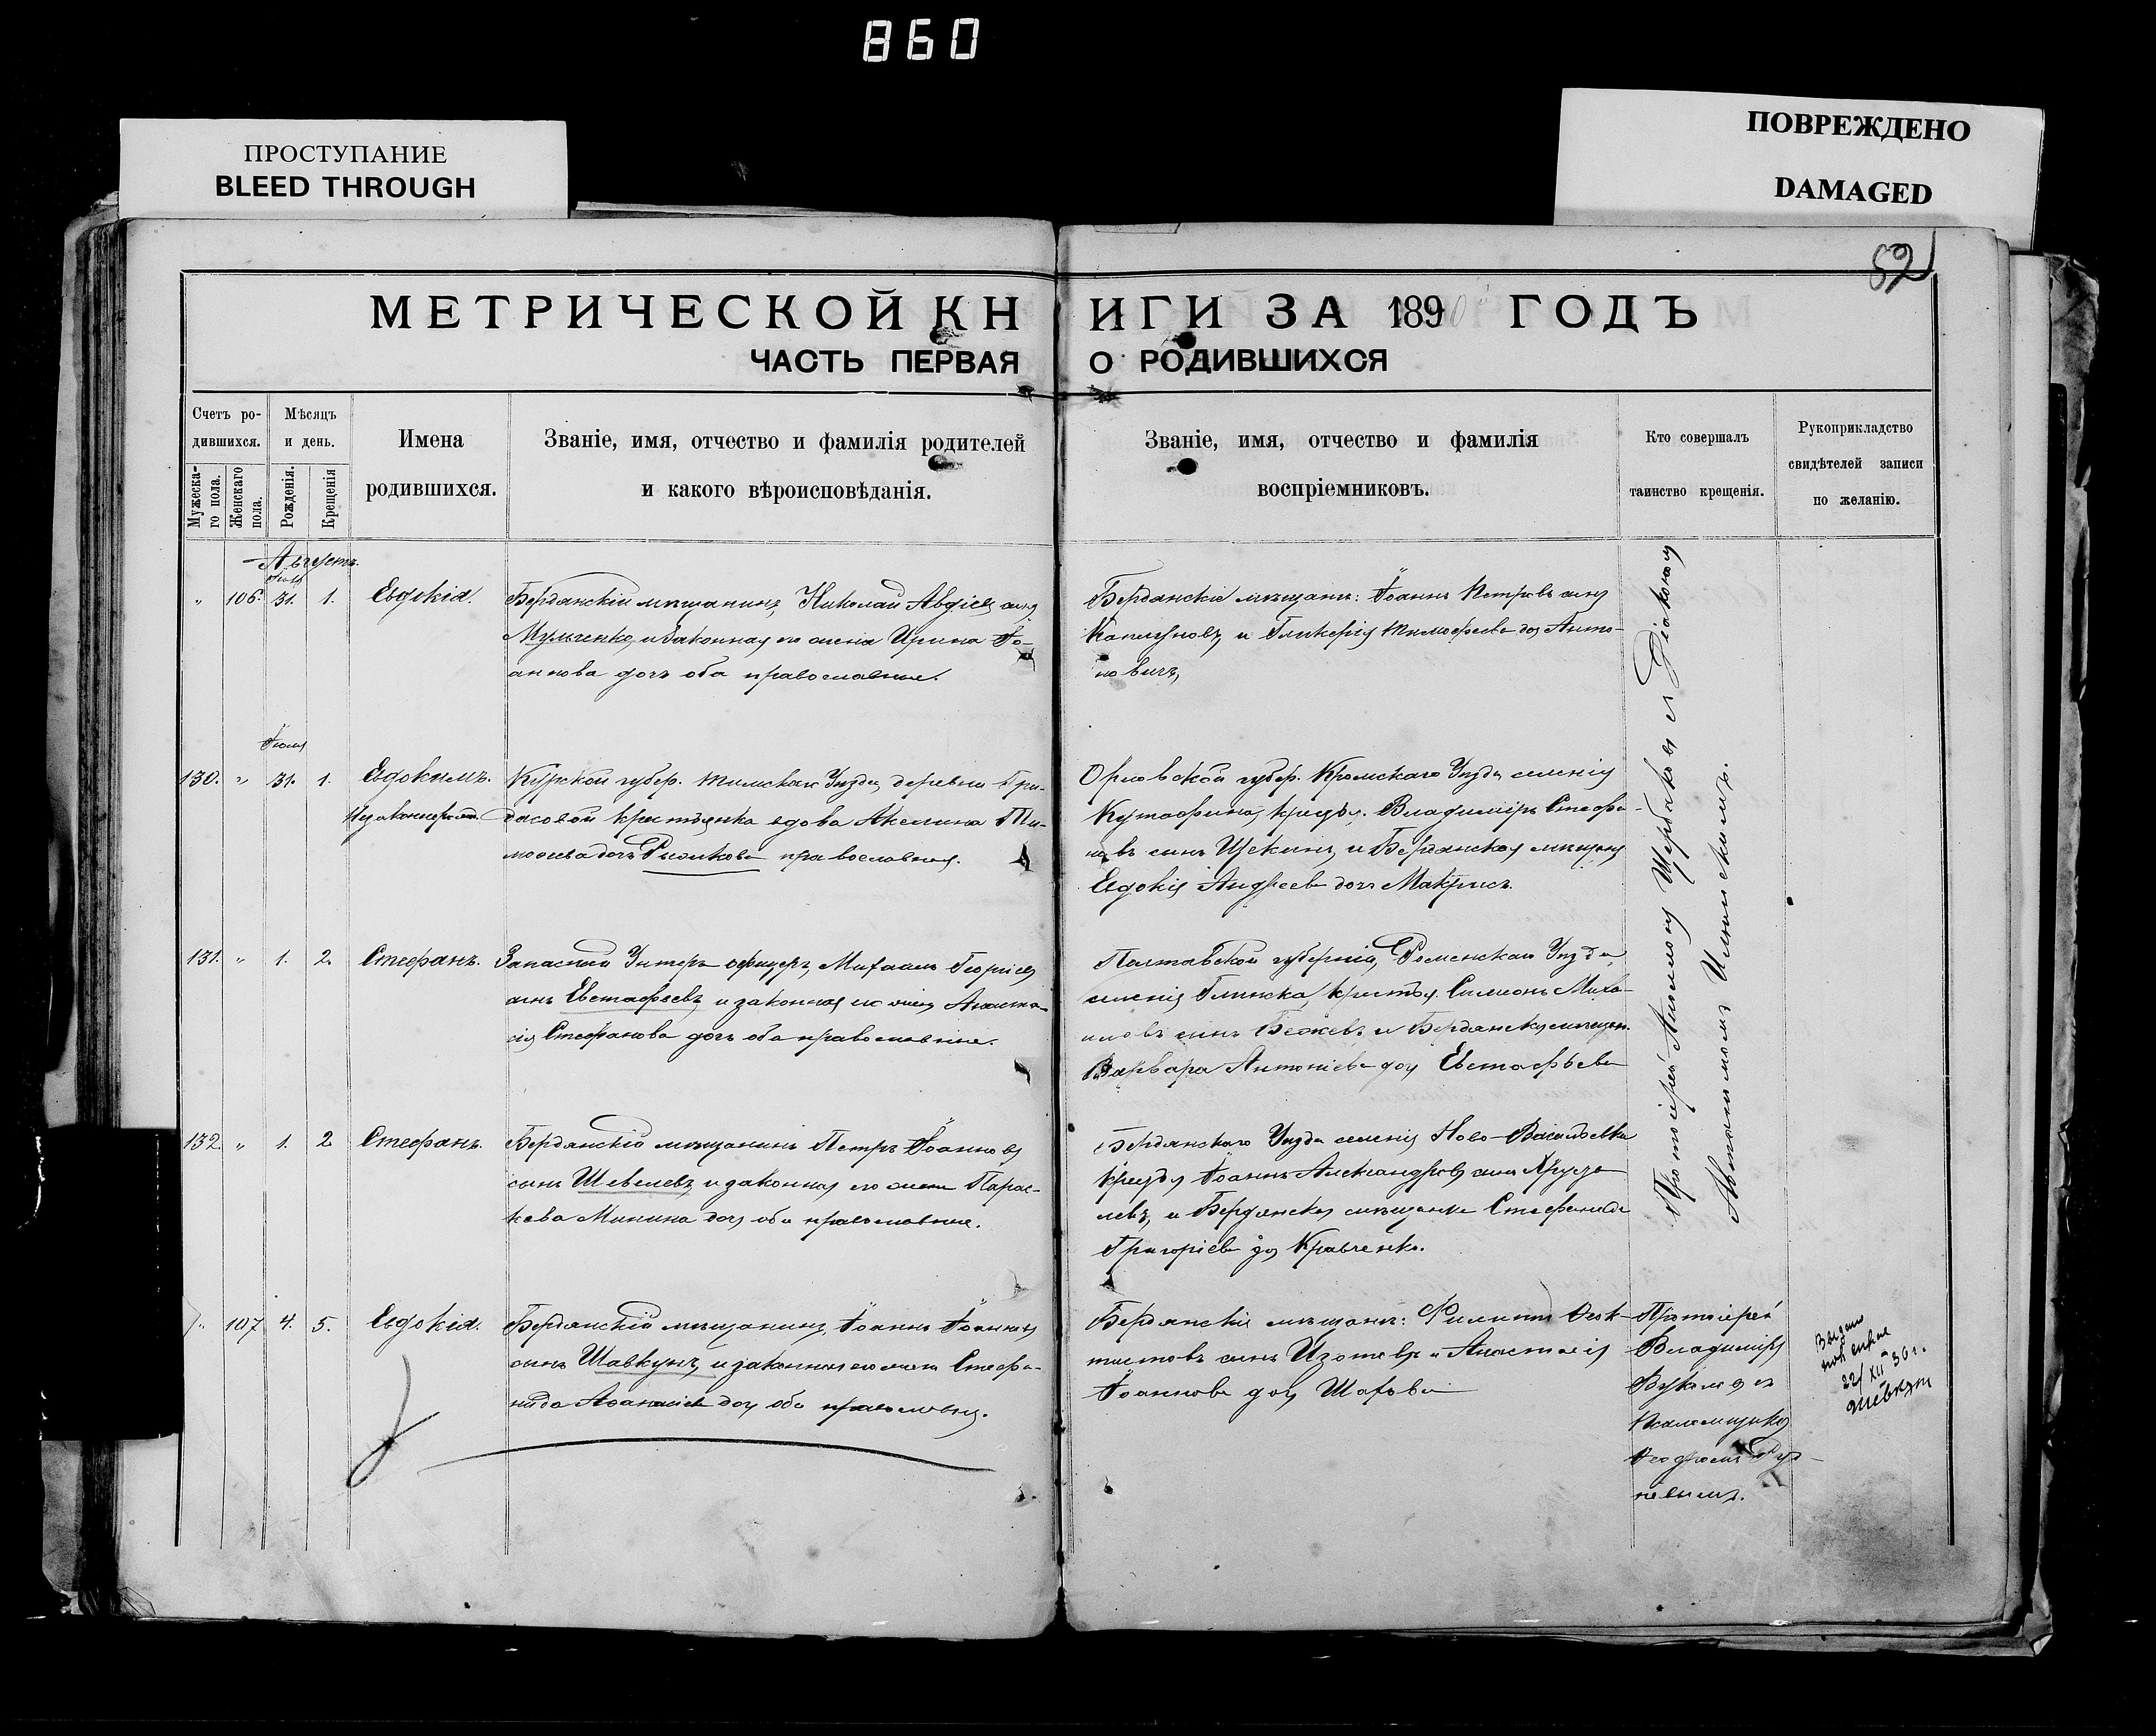 860
ПРОСТУПАНИЕ
BLEED THROUGH
ПОВРЕЖДЕНО
DAMAGED
52
МЕТРИЧЕСКОЙ КНИГИ ЗА 1890 ГОДЪ
ЧАСТЬ ПЕРВАЯ О РОДИВШИХСЯ
Счетъ родившихся.
Мужеска-
го пола.
Женскаго
пола.
Мѣсяцъ
и день.
Рожденія.
Крещенія
Имена
родившихся.
Званіе, имя, отчество и фамилія родителей
и какого вѣроисповѣданія.
Званіе, имя, отчество и фамилія
воспріемниковъ.
Кто совершалъ
таинство крещенія.
Рукоприкладство
свидѣтелей записи
по желанію.
Августъ.
Іюля
" 106. 31. 1. Евдокія.
Бердянскій мѣщанинъ, Николай Авдіевъ сынъ
Мульченко, и законная его жена Ирина Іо-
аннова дочь оба православные.
Бердянскіе мѣщане: Іоаннъ Петровъ сынъ
и Гликерія Тимофеева доч Анто-
новичъ,
Іюля
130. " 31. 1. Евдокимъ.
Незаконнорожд.
Курской губер. Тимскаго Уѣзда, деревни
крестьянка вдова Акелина
дочь православная.
Орловской губер. Кромскаго Уѣзда селенія
Владиміръ Стефа-
новъ сынъ Щекинъ, и Бердянская мѣщан
Евдокія Андреева дочь Макрисъ.
131. " 1. 2. Стефанъ.
Запасный Унтеръ офицеръ, Михаилъ Георгіевъ
сынъ Евстафьевъ, и законная его жена Анаста-
сія Стефанова дочь оба православные.
Полтавской губерніи, Роменскаго Уѣзда
селенія Глинска, крестья. Симеонъ Миха-
иловъ сынъ и Бердянская мѣщан.
Варвара Антоніева доч Евстафьева
132. " 1. 2 Стефанъ.
Бердянскій мѣщанинъ Петръ Іоанновъ
сынъ Шевелевъ, и законная его жена Парас-
кева Минина доч оба православные.
Бердянскаго Уѣзда селенія Ново-Васильевки
Іоаннъ Александровъ сынъ
левъ, и Бердянская мѣщанка Стефанида
Григоріева доч Кравченко.
" 107 4. 5. Евдокія.
Бердянскій мѣщанинъ, Іоаннъ Іоанновъ
сынъ Шавкунъ, и законная его жена Стефа-
нида Афанасіева доч оба православны.
Бердянскіе мѣщане: Филиппъ Феок-
тистовъ сынъ Изотовъ и Анастасія
Іоаннова доч Шахова
Протоіерей Щербаковъ съ Діакономъ
Автономомъ Ильинскимъ.
Протоіерей
Владиміръ
съ
Псаломщикомъ
22/XII 36 г.
Шевкун